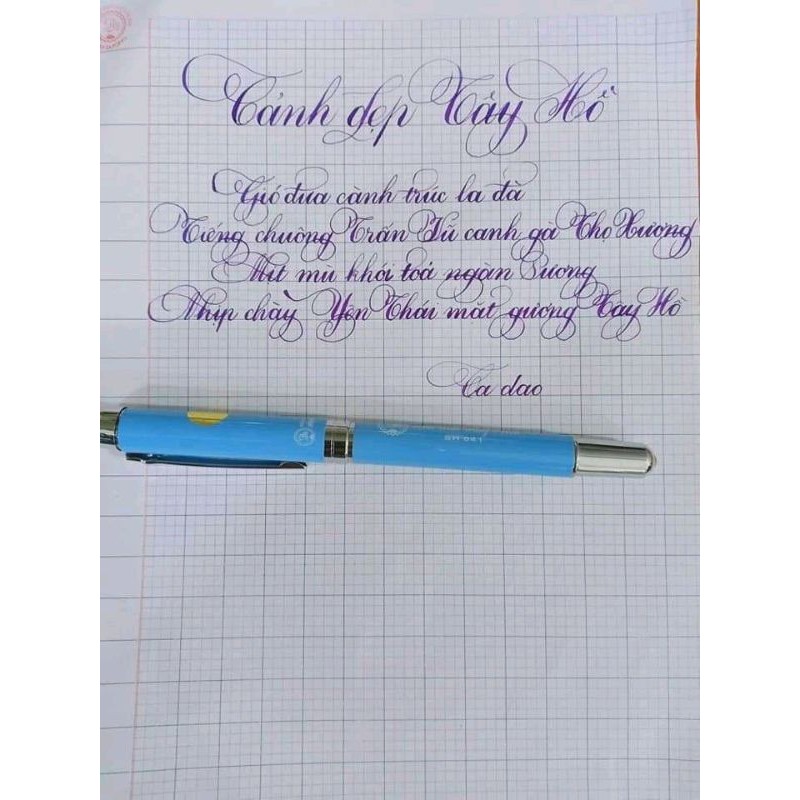 Cảnh đẹp Tây Hồ
Gió đưa cành trúc la đà
Tiếng chuông Trấn Vũ canh gà Thọ Xương
Mịt mù khói toả ngàn sương
Nhịp chày Yên Thái mặt gương Tây Hồ
Ca dao